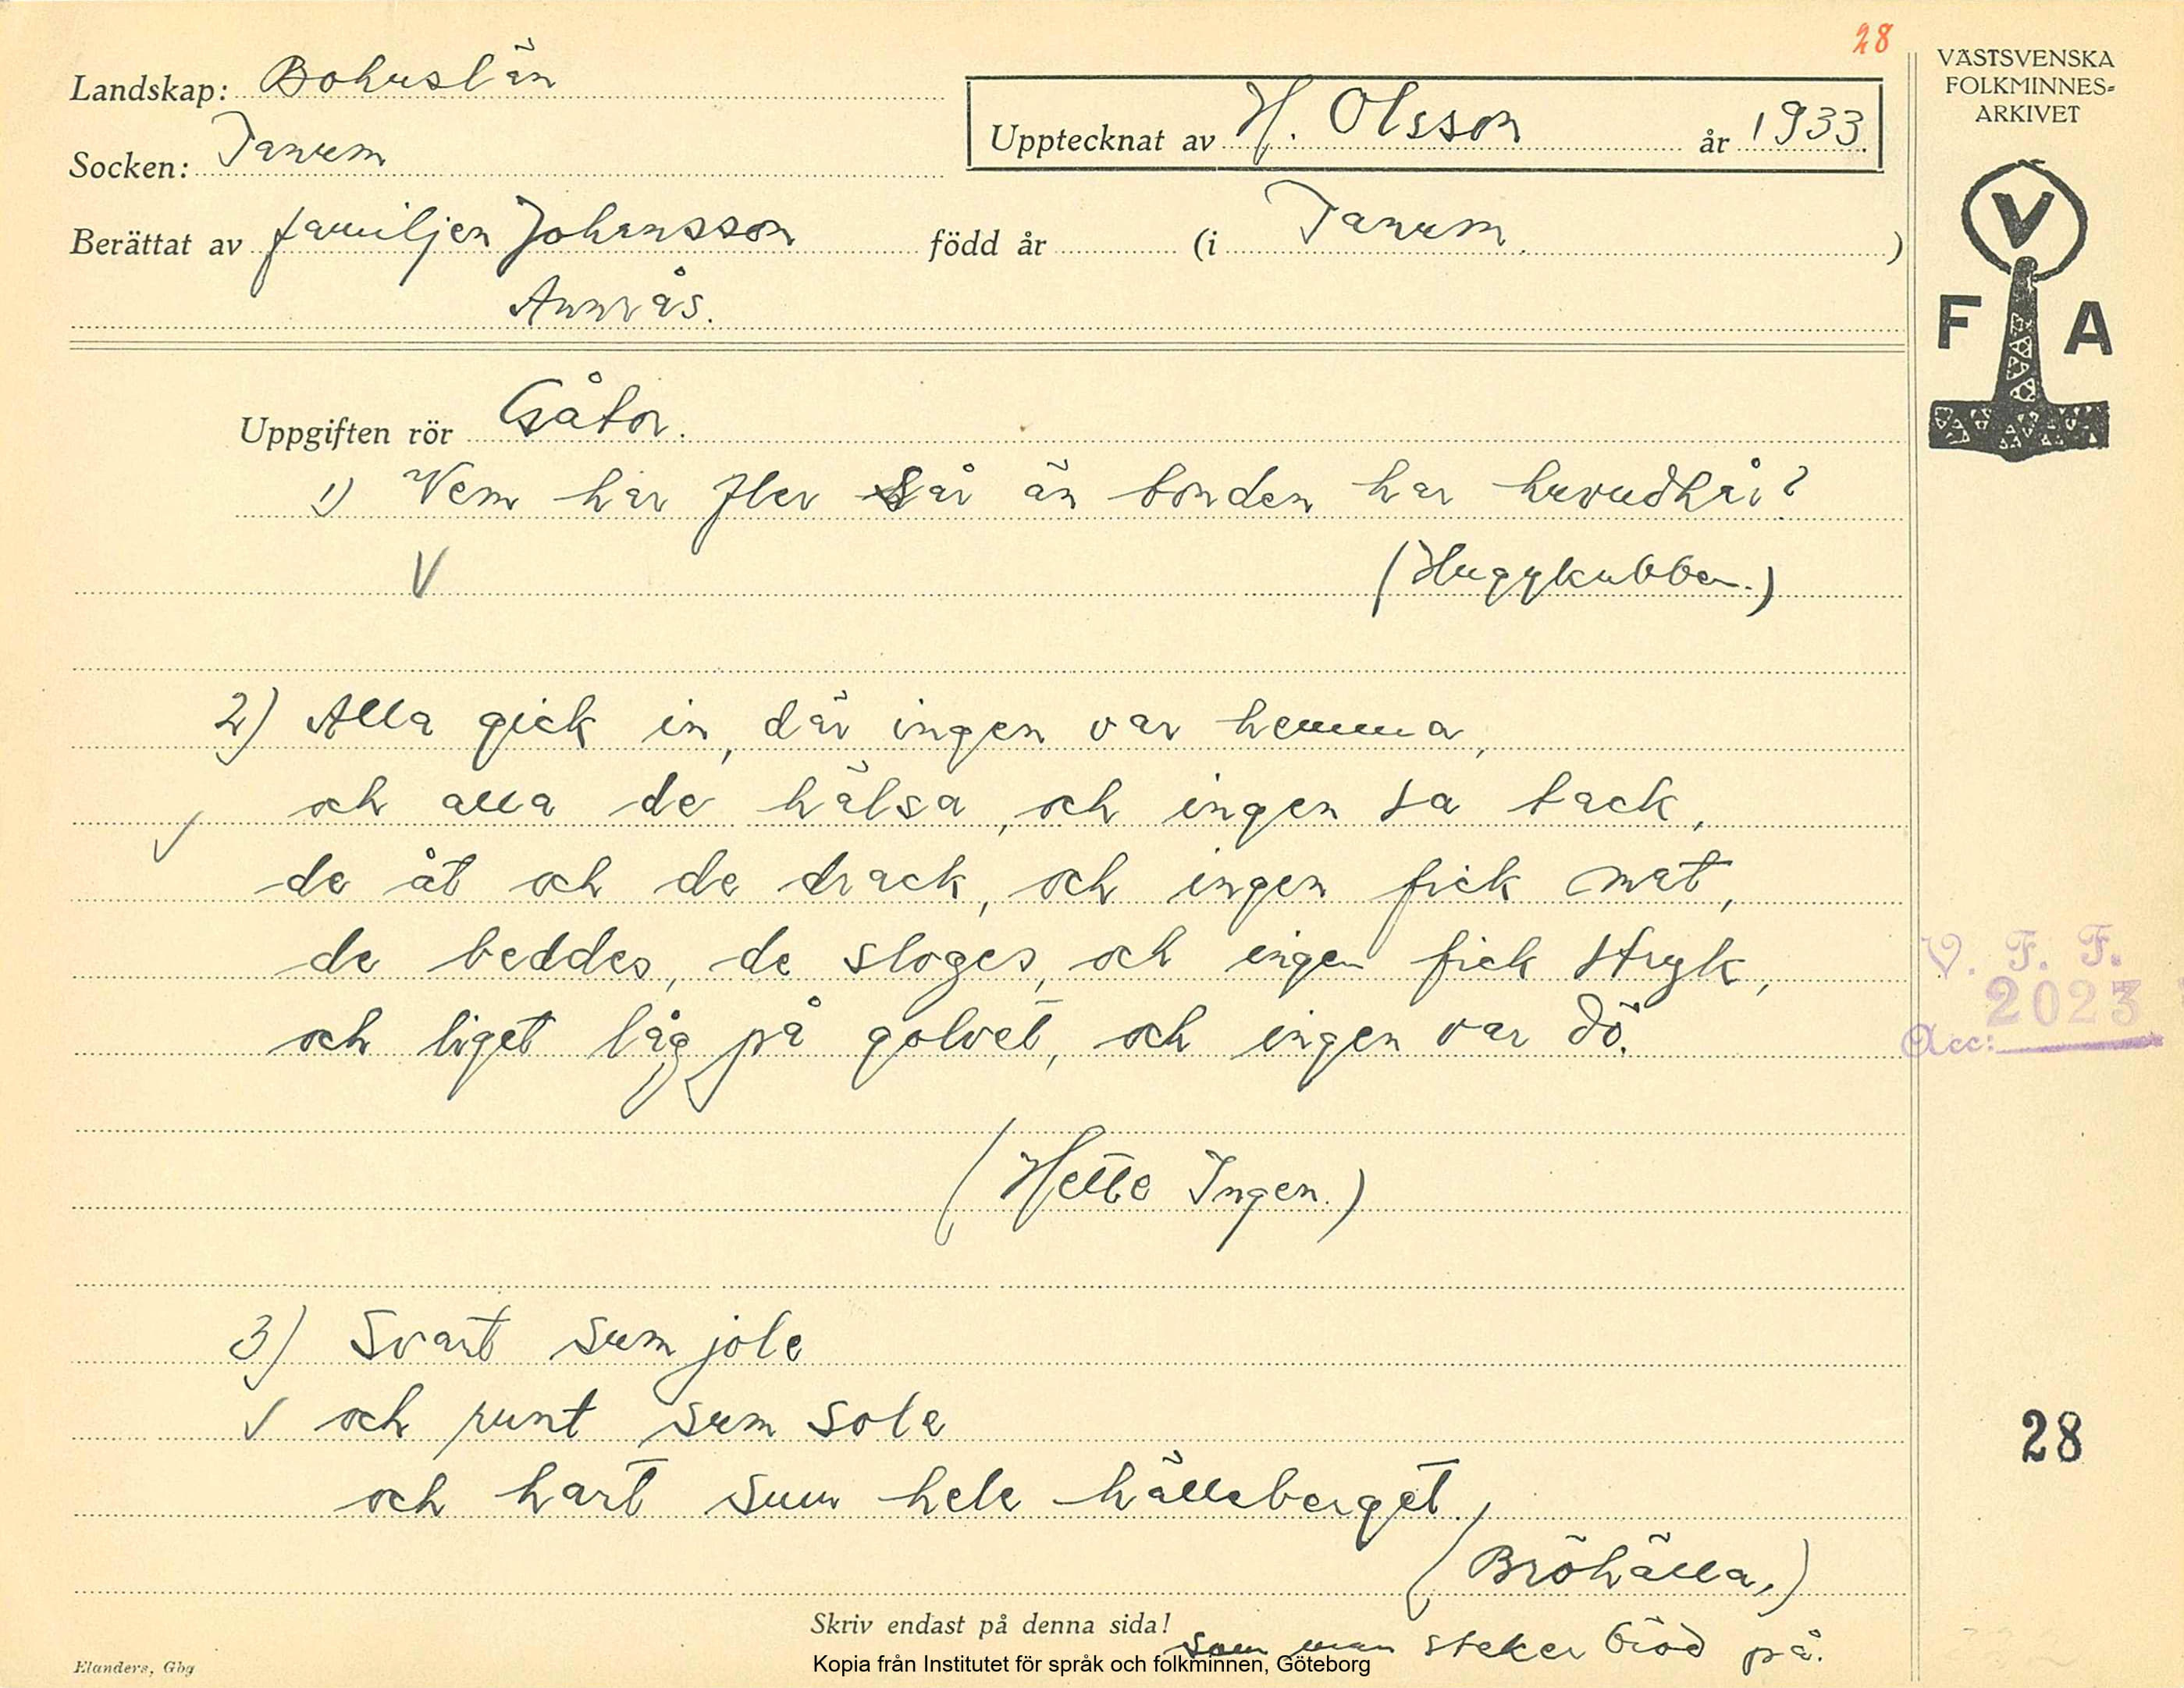 28
Landskap: Bohuslän
VÄSTSVENSKA
FOLKMINNES-
ARKIVET
Upptecknat av H. Olsson år 1933.
Socken: Tanum
Berättat av familjen Johansson född år (i Tanum.)
Annrås.
V
F A
Uppgiften rör Gåtor.
1) Vem har fler sår än bonden har huvudhår?
V (Huggkubben.)
2) Alla gick in, där ingen var hemma,
och alla de hälsa, och ingen sa tack,
de åt och de drack, och ingen fick mat,
de beddes, de sloges, och ingen fick stryk,
och liget låg på golvet, och ingen var dö.
V. F. F.
2023
Acc:
(Hette Ingen.)
3) Svart sum jole
och runt sum sole
och hart sum hele hälleberget.
28
(Bröhälla,)
Skriv endast på denna sida!
som man steker bröd på.
Elanders, Gbg
Kopia från Institutet för språk och folkminnen, Göteborg